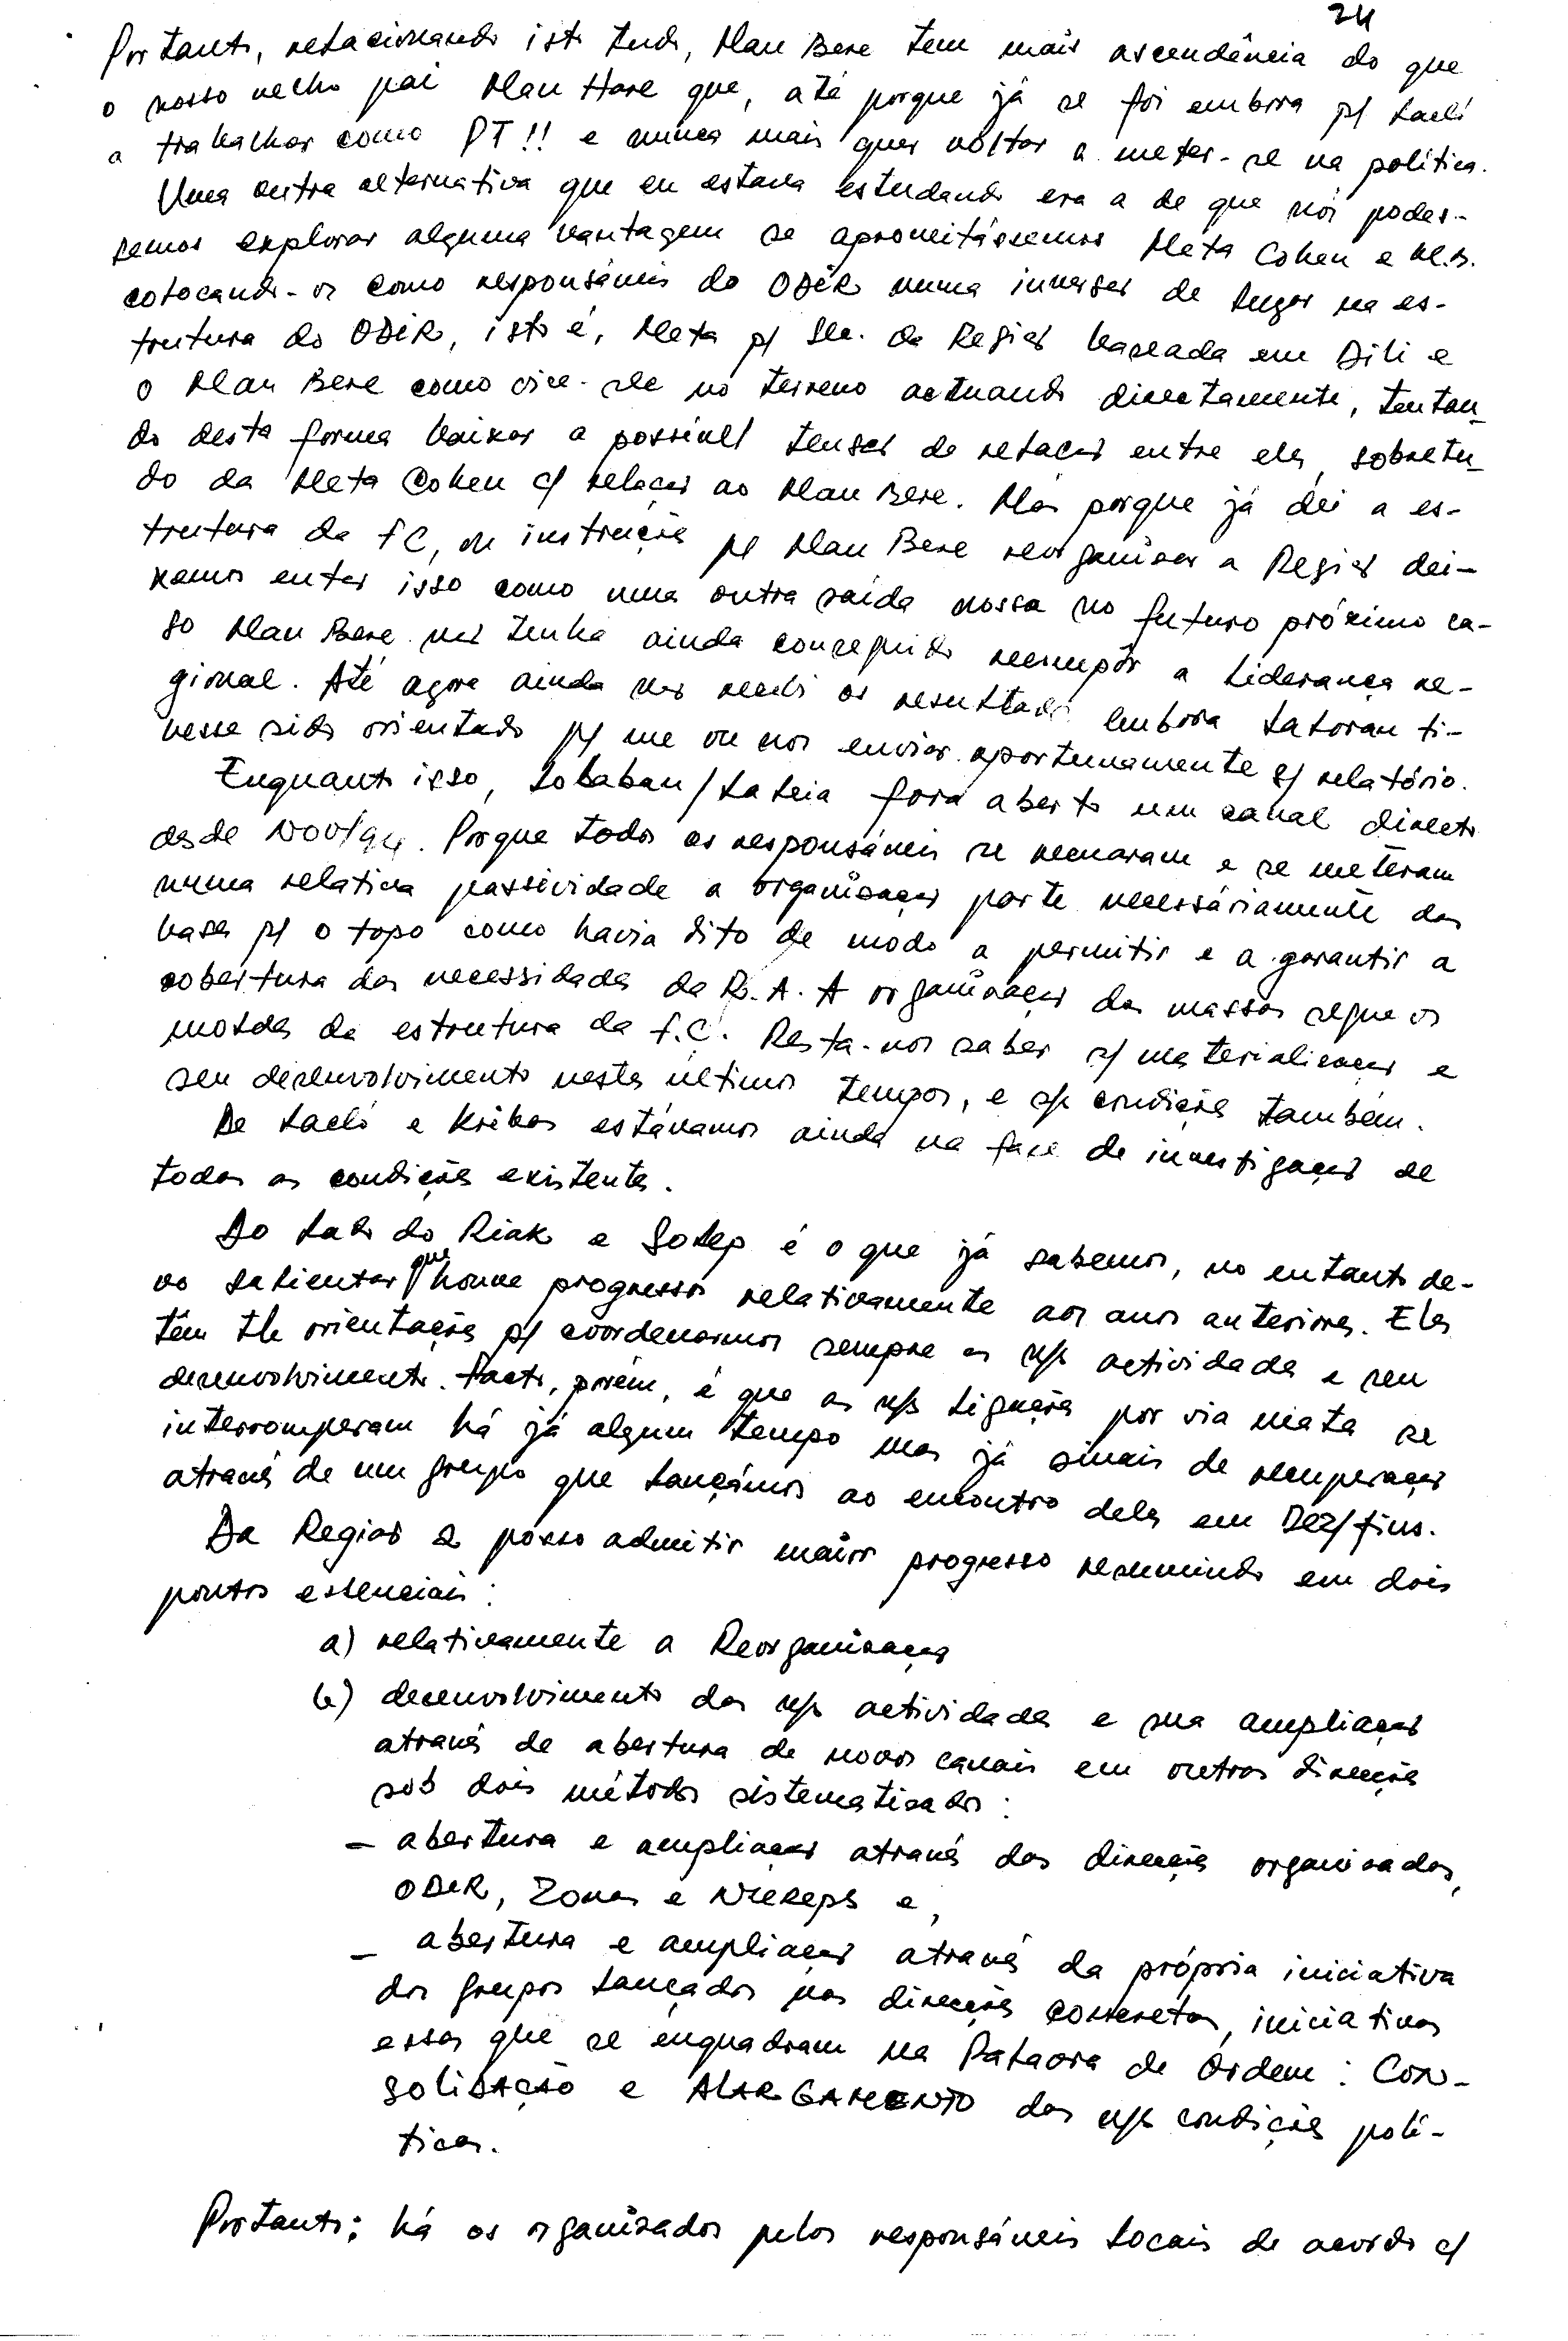 24
Portanto, relacionando isto tudo, Mau Bere tem mais ascendência do que
o nosso velho pai Mau Hare que, até porque já se foi embora p/ Lacló
a trabalhar como PT!! e nunca mais quer voltar a meter-se na política.
Uma outra alternativa que eu estava estudando era a de que nós podes-
semos explorar alguma vantagem se aproveitássemos Meta Cohen e M.B.
colocando-os como responsáveis do ODIR numa inversão de lugar na es-
trutura do ODIR, isto é, Meta p/ Sec. da Região baseada em Dili e
o Mau Bere como vice-sec no terreno actuando directamente, tentan_
do desta forma baixar a possível tensão de relação entre eles, sobretu_
do da Meta Cohen c/ relação ao Mau Bere. Mas porque já dei a es-
trutura da FC, e instruções p/ Mau Bere reorganizar a Região dei-
xamos então isso como uma outra saída nossa no futuro próximo ca-
so Mau Bere não tenha ainda conseguido recompôr a liderança re-
gional. Até agora ainda não recebi os resultados embora Latoran ti-
vesse sido orientado p/ me ou nos enviar oportunamente s/ relatório.
Enquanto isso, Lolaban/Laleia fora aberto um canal directo
desde Nov/94. Porque todos os responsáveis se recuaram e se meteram
numa relativa passividade a organização parte necessáriamente das
bases p/ o topo como havia dito de modo a permitir e a garantir a
cobertura das necessidades da R.A. A organização das massas segue os
moldes da estrutura da F.C. Resta-nos saber s/ materialização e
seu desenvolvimento nestes últimos tempos, e s/ condições também.
De Lacló e Kribas estávamos ainda na fase de investigação de
todas as condições existentes.
Do lado do Riak e Solep é o que já sabemos, no entanto de-
vo salientar que houve progressos relativamente aos anos anteriores. Eles
têm tb orientações p/ coordenarmos sempre as n/s actividades e seu
desenvolvimento. Facto, porém, é que as n/s ligações por via mata se
interromperam há já algum tempo mas já sinais de recuperação
através de um grupo que lançámos ao encontro deles em Dez/fins.
Da Região 2 posso admitir maior progresso resumindo em dois
pontos essenciais:
a) relativamente a Reorganização
b) desenvolvimento das n/s actividades e sua ampliação
através de abertura de novos canais em outras direcções
sob dois métodos sistematizados:
- abertura e ampliação através das direcções organizadas,
ODIR, Zonas e Nureps e,
- abertura e ampliação através da própria iniciativa
dos grupos lançados nas direcções concretas, iniciativas
essas que se enquadram na Palavra de Órdem: CON-
SOLIDAÇÃO e ALARGAMENTO das n/s condições polí-
ticas.
Portanto; há os organizados pelos responsáveis locais de acordo c/